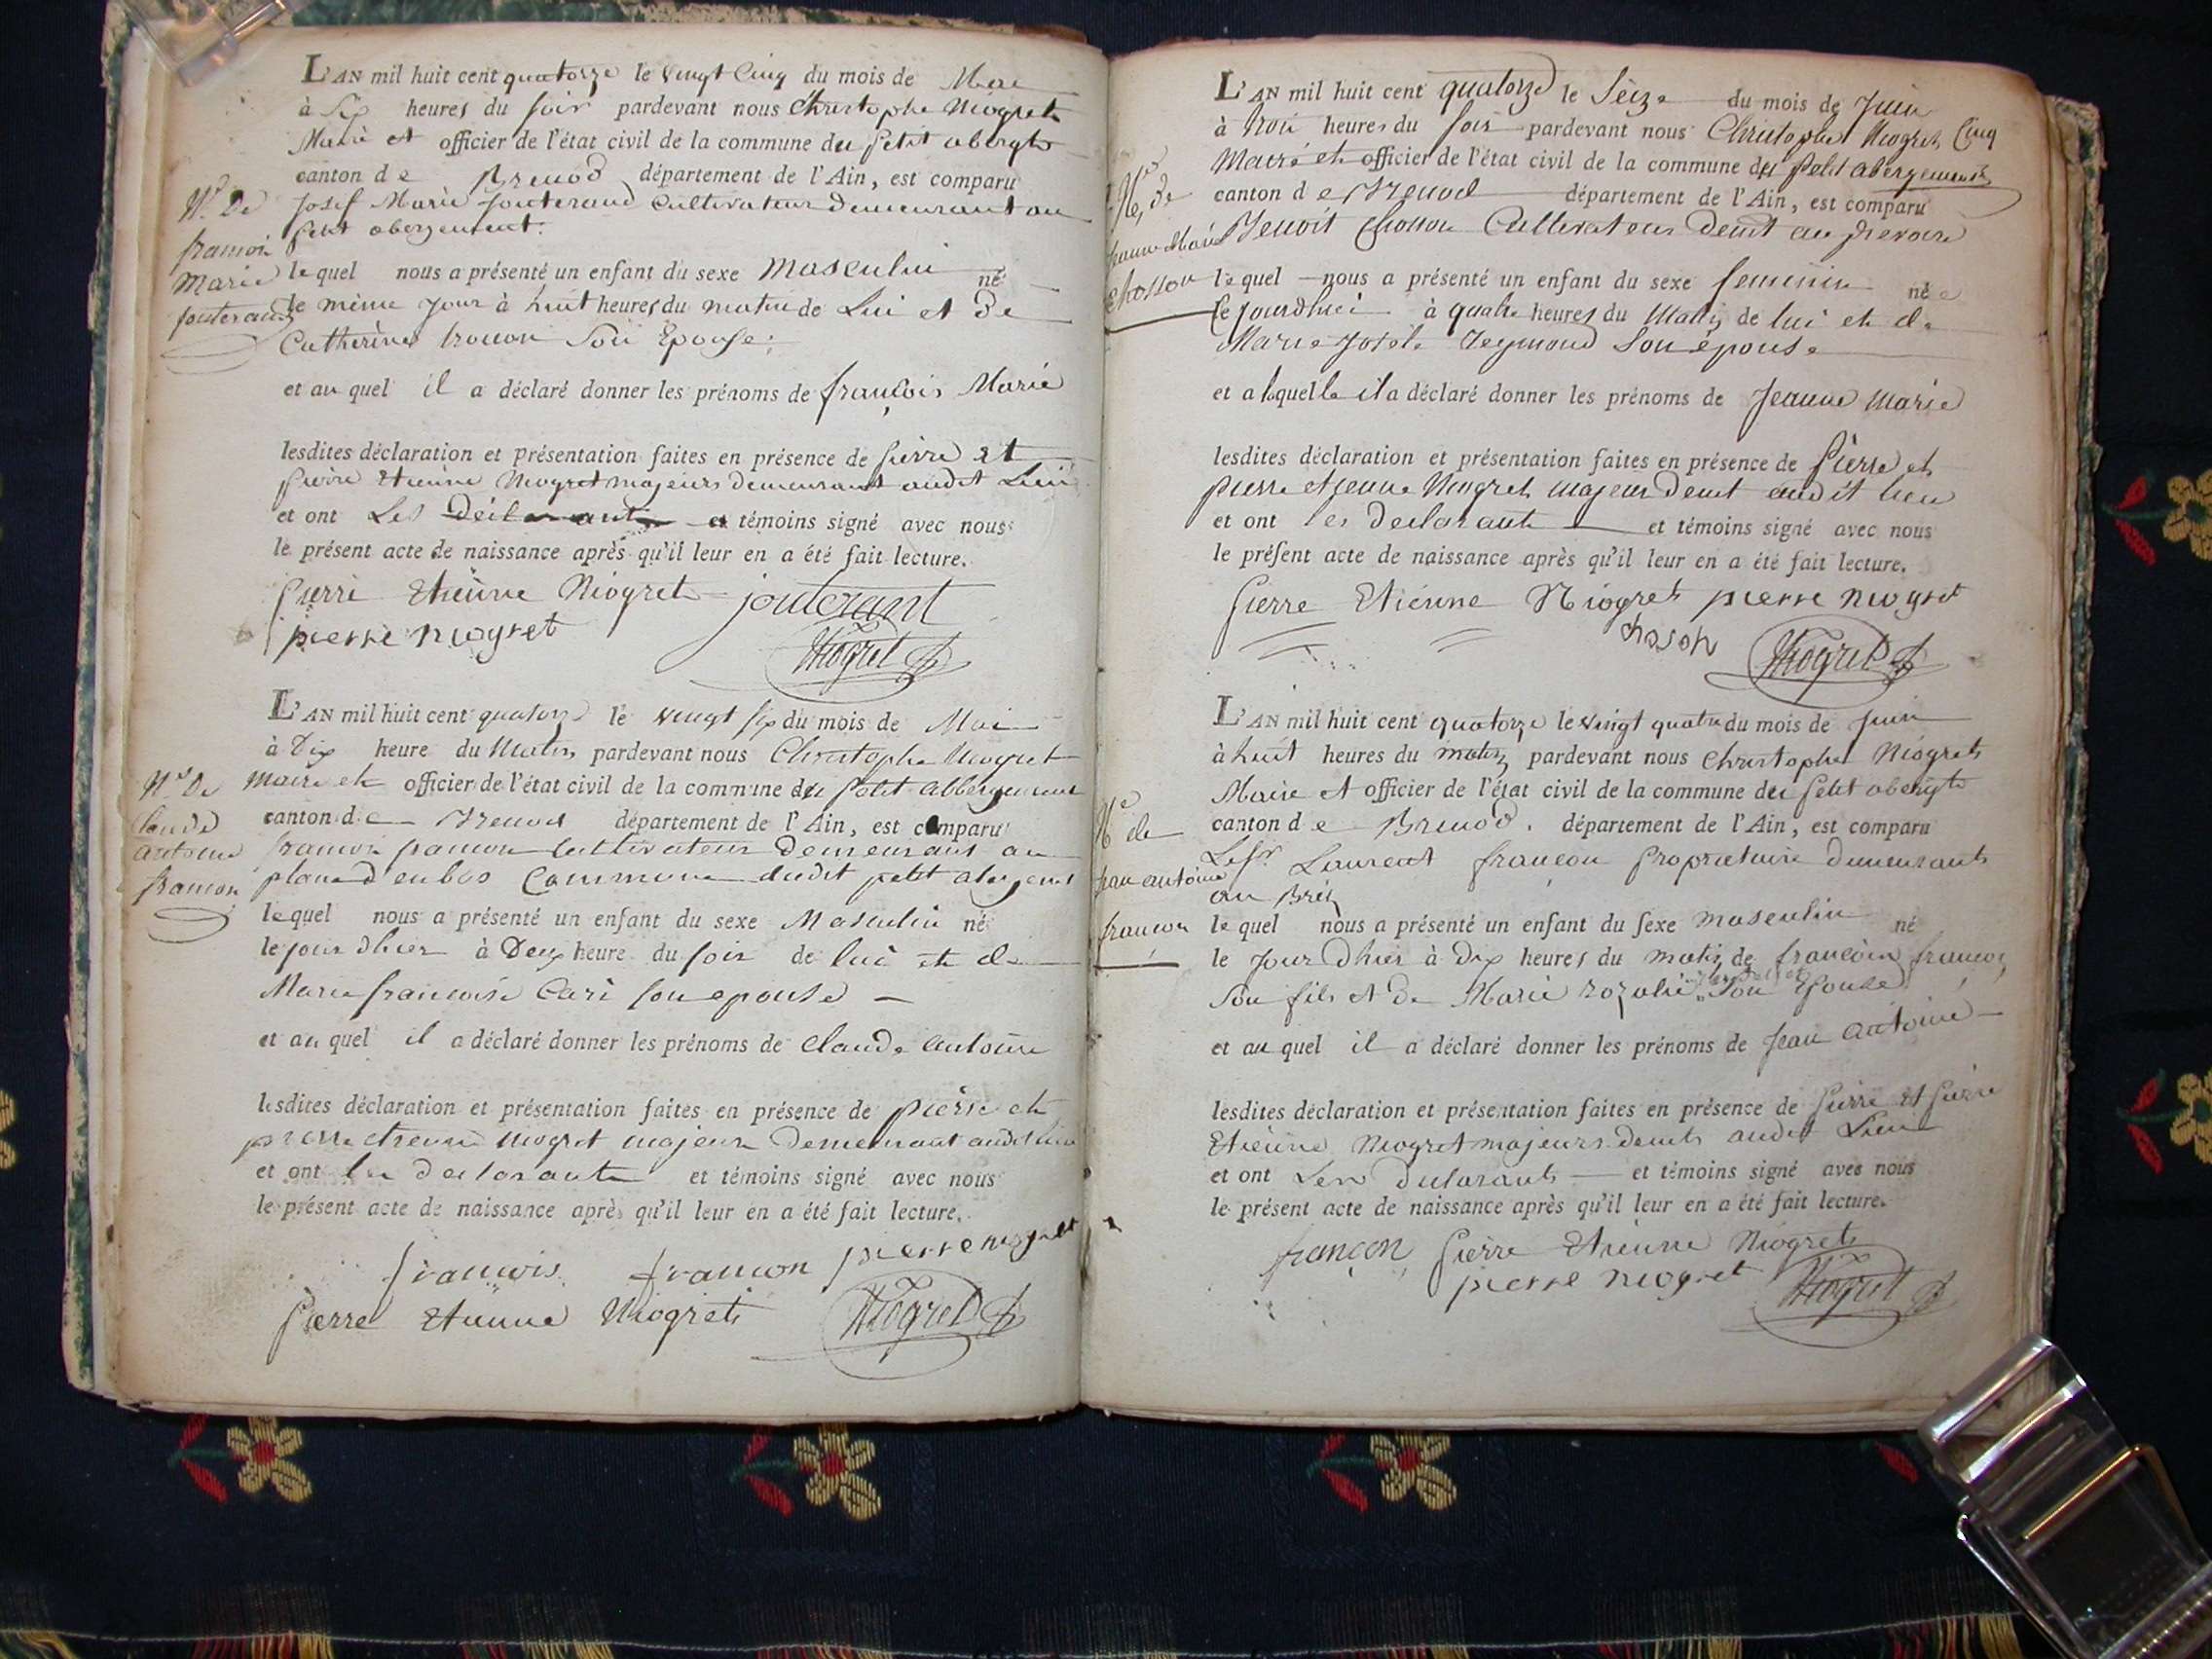 L'AN mil huit cent quatorze le vingt cinq du mois de Mai
à Six heures du soir pardevant nous Christophe Niogret
Maire et officier de l'état civil de la commune du petit abergt
canton de Brenod département de l'Ain, est comparu
Josef Marie Jouterand Cultivateur demeurant au
petit abergement.
lequel nous a présenté un enfant du sexe Masculin né
le même jour à huit heures du matin de Lui et De
Catherine Son Epouse;
et auquel il a déclaré donner les prénoms de françois Marie
lesdites déclaration et présentation faites en présence de pierre et
pierre Etienne Niogret majeurs demeurant audit Lieu
et ont Les Déclarants et témoins signé avec nous
le présent acte de naissance après qu'il leur en a été fait lecture.
pierre Etiènne Niogret jouterant
pierre niogret
Niogret
N.ce De
françois
Marie
jouterand
L'AN mil huit cent quatorze le vingt six du mois de Mai
à Dix heure du Matin pardevant nous Christophe Niogret
Maire et officier de l'état civil de la commune du petit abbergement
canton de Brenod département de l'Ain, est comparu
françois françon Cultivateur Demeurant au
plane d'en bas Commune dudit petit abergemt
lequel nous a présenté un enfant du sexe Masculin né
le jour d'hier à Deux heure du soir de lui et de
Marie francoise Cari son epouse
et auquel il a déclaré donner les prénoms de Claude antoine
lesdites déclaration et présentation faites en présence de pierre et
pierre etienne niogret majeurs demeurant audit lieu
et ont les declarants et témoins signé avec nous
le présent acte de naissance après qu'il leur en a été fait lecture.
francois francon pierre niogret
pierre Etienne Niogret Niogret
N.ce De
Claude
antoine
francon
L'AN mil huit cent quatorze le Seize du mois de Juin
à trois heures du soir pardevant nous Christophe Niogret Cinq
Maire et officier de l'état civil de la commune du petit abergement
canton de Brenod département de l'Ain, est comparu
Benoit Chosson Cultivateur demt au
lequel nous a présenté un enfant du sexe feminin née
Cejourdhui à quatre heures du Matin de lui et de
Marie Josete Reymond Son épouse
et a laquelle il a déclaré donner les prénoms de Jeanne Marie
lesdites déclaration et présentation faites en présence de pierre et
pierre etienne Niogret majeur demt audit lieu
et ont les declarants et témoins signé avec nous
le présent acte de naissance après qu'il leur en a été fait lecture.
pierre Etiènne Niogret pierre niogret
choson Niogret
N.ce de
jeanne Marie
chosson
L'AN mil huit cent quatorze le vingt quatre du mois de juin
à huit heures du matin pardevant nous Christophe Niogret
Maire et officier de l'état civil de la commune du petit abergt
canton de Brenod. département de l'Ain, est comparu
Le Sr Laurent françon proprietaire demeurant
au Bret
lequel nous a présenté un enfant du sexe masculin né
le jour d'hier à dix heures du matin de françois françon
Son fils et de Marie rozalie Son Epouse
et auquel il a déclaré donner les prénoms de Jean antoine
lesdites déclaration et présentation faites en présence de pierre et pierre
Etiènne Niogret majeurs demts audit Lieu
et ont Les declarants et témoins signé avec nous
le présent acte de naissance après qu'il leur en a été fait lecture.
françon pierre Etienne Niogret
pierre niogret Niogret
N.ce de
jean antoine
françon